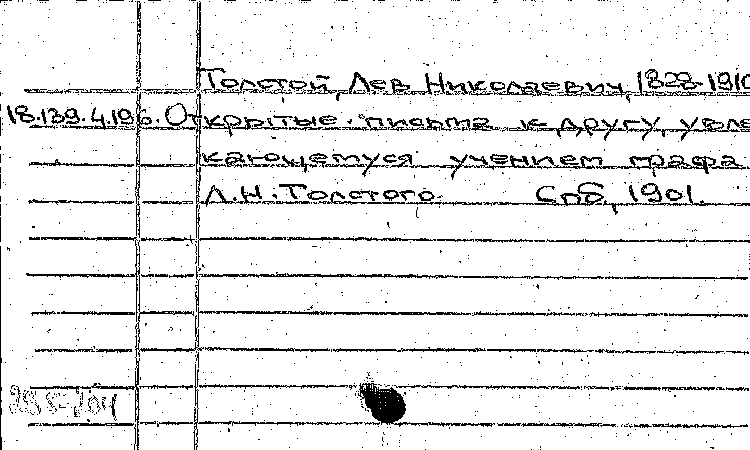 Толстой, Лев Николаевич, 1828-1910
18.139.4.196. Открытые письма к другу, увле
кающемуся учением графа
Л.Н. Толстого. Спб, 1901.